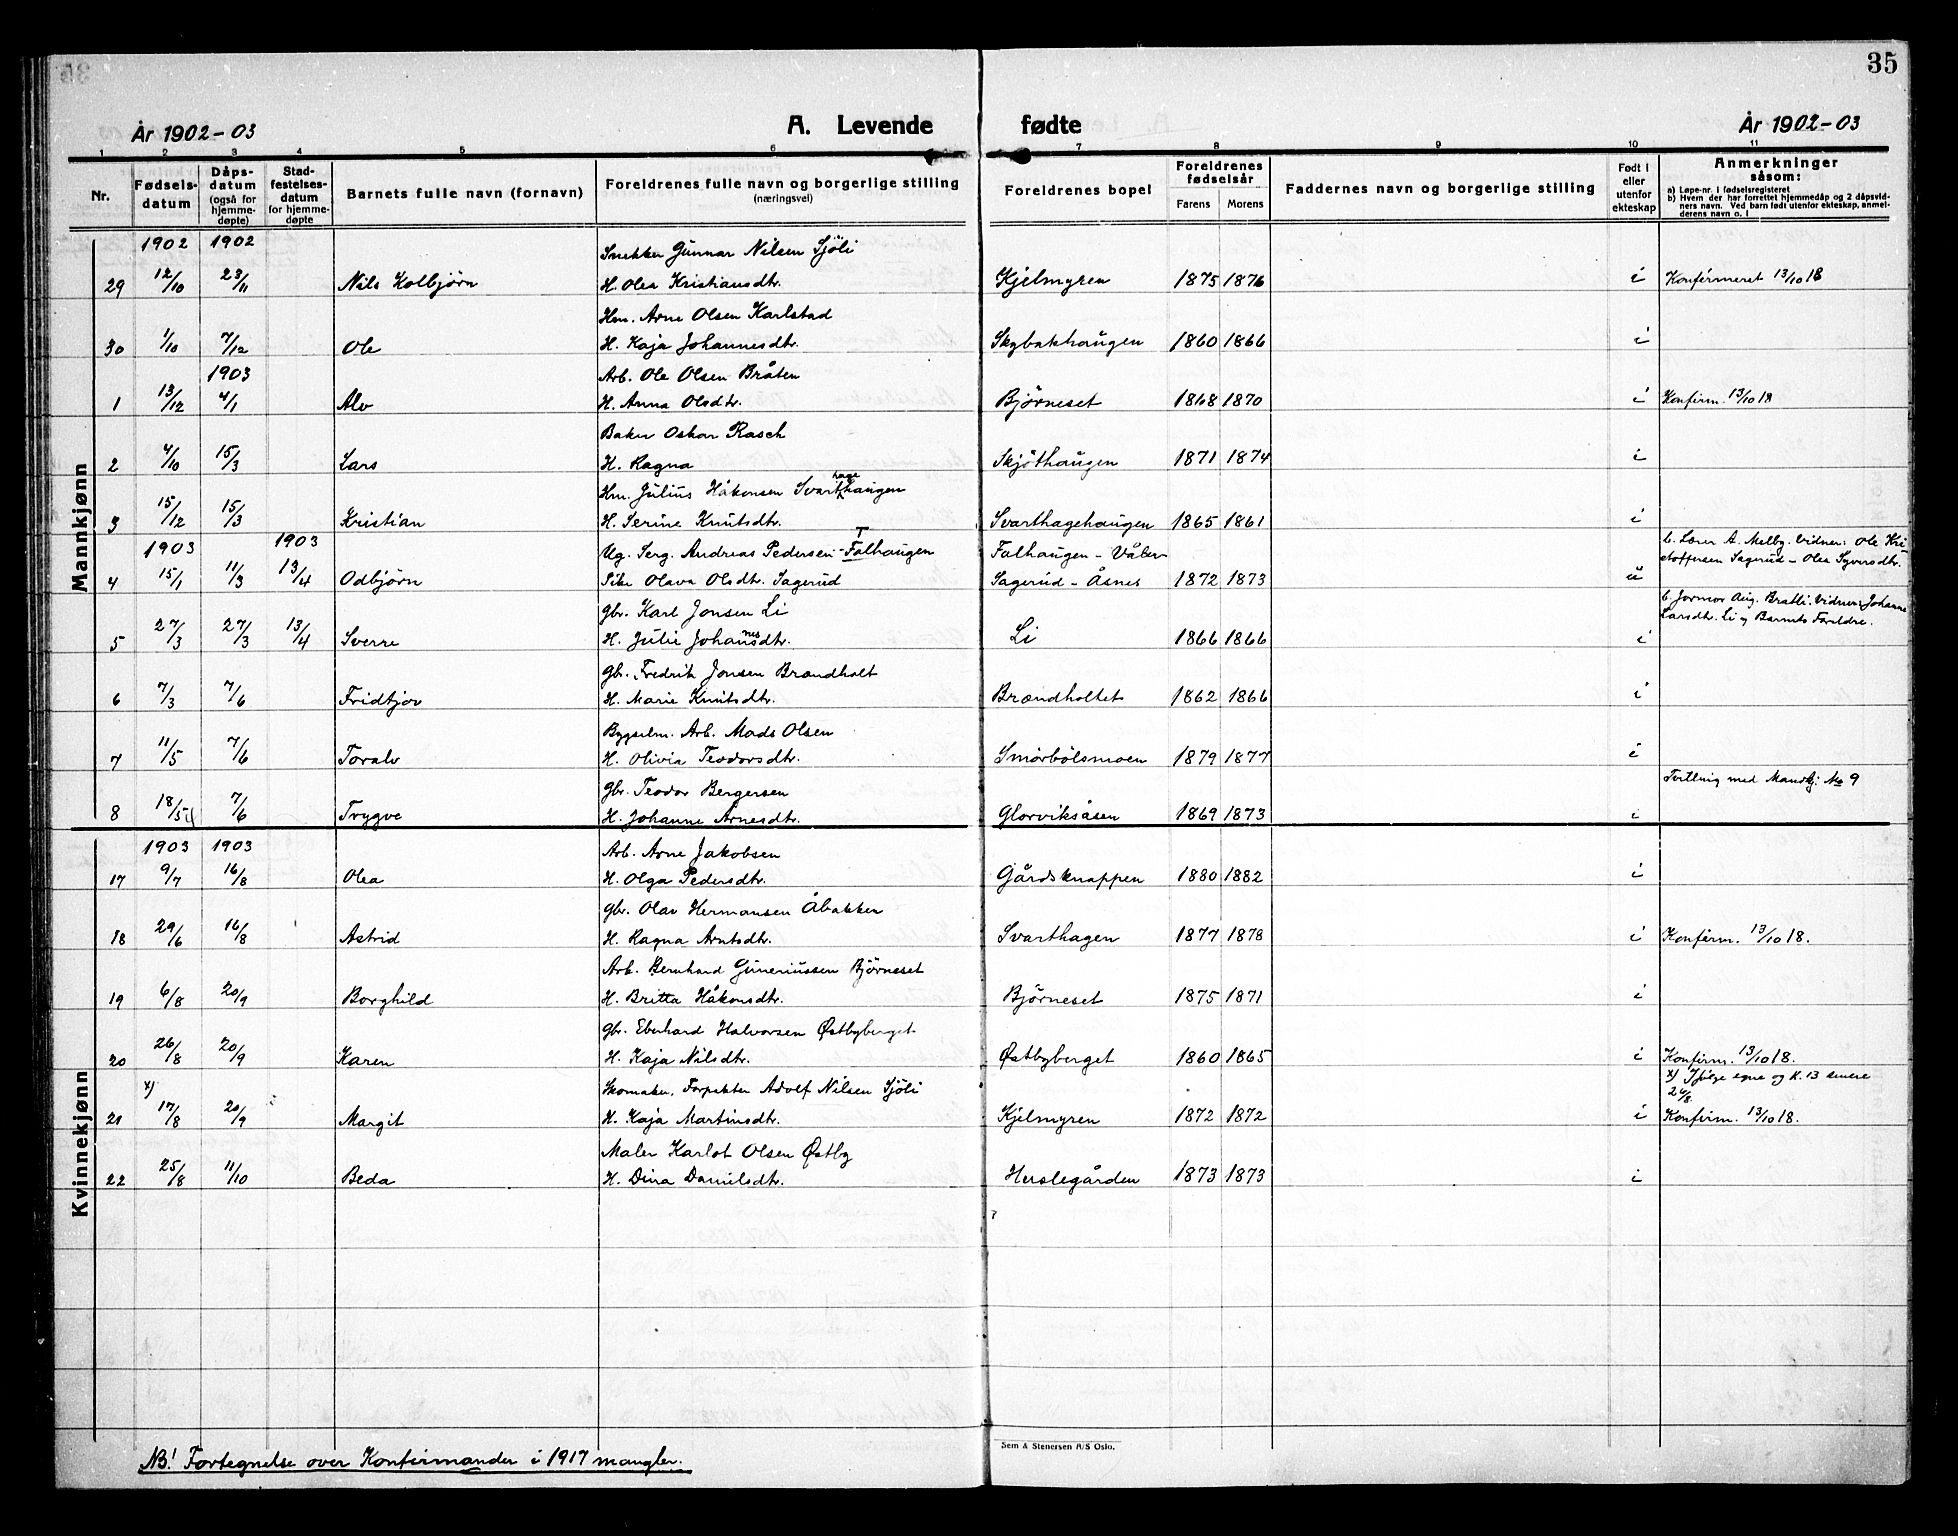 35
År 1902-03 A. Levende fødte År 1902-03
1 2 3 4 5 6 7 8 9 10 11
Nr. Fødsels-datum Dåps-datum (også for hjemme-døpte) Stad-festelses-datum for hjemme-døpte Barnets fulle navn (fornavn) Foreldrenes fulle navn og borgerlige stilling (næringsvei) Foreldrenes bopel Foreldrenes fødselsår Farens Morens Faddernes navn og borgerlige stilling Født i eller utenfor ekteskap Anmerkninger såsom:
a) Løpe-nr. i fødselsregisteret
b) Hvem der har forrettet hjemmedåp og 2 dåpsvid-
ners navn. Ved barn født utenfor ekteskap, anmel-
derens navn o. l
Mannkjønn
1902 1902 Snekker Gunnar Nilsen Sjöli
29 12/10 23/11 Nils Kolbjörn H. Olea Kristiansdtr. Kjelmyren 1875 1876 i Konfirmeret 13/10 18
Hm. Arne Olsen Karlstad
30 1/10 7/12 Ole H. Kaja Johannesdtr. Skybakhaugen 1860 1866 i
1903 Arb. Ole Olsen Bråten
1 13/12 4/1 Alv H. Anna Olsdtr. Björneset 1868 1870 i Konfirm. 13/10 18
Baker Oskar Rasch
2 4/10 15/3 Lars H. Ragna Skjöthaugen 1871 1874 i
Hm. Julius Håkonsen Svarthagehaugen
3 15/12 15/3 Kristian H. Serine Knutsdtr. Svarthagehaugen 1865 1861 i
1903 1903 Ug. Serg. Andreas Pedersen - Falhaugen Falhaugen - Våler
b. Lærer A. Melby. Vidner: Ole Kri-
4 15/1 11/3 13/4 Odbjörn Pike Olava Olsdtr. Sagerud Sagerud - Åsnes 1872 1873 u stoffersen Sagerud - Olea Syversdtr.
Gbr. Karl Jonsen Li
b. Jormor Aug. Bratli. Vidner: Johanne
5 27/3 27/3 13/4 Sverre H. Julie Johannesdtr. Li 1866 1866 i Larsdtr. Li og Barnets Forældre.
Gbr. Fredrik Jonsen Brændholt
6 7/3 7/6 Fridtjov H. Marie Knutsdtr. Brændholtet 1862 1866 i
Bygselm. Arb. Mads Olsen
7 11/5 7/6 Toralv H. Olivia Teodorsdtr. Smörbölsmoen 1879 1877 i
Gbr. Teodor Bergersen
Tvilling med Mandkj. No 9
8 18/5 7/6 Trygve H. Johanne Arnesdtr. Glorviksåsen 1869 1873 i
Kvinnekjønn
1903 1903 Arb. Arne Jakobsen
17 9/7 16/8 Olea H. Olga Pedersdtr. Gårdsknappen 1880 1882 i
Gbr. Olav Hermansen Åbakken
18 29/6 16/8 Astrid H. Ragna Arntsdtr. Svarthagen 1877 1878 i Konfirm. 13/10 18.
Arb. Bernhard Guneriussen Björneset
19 6/8 20/9 Borghild H. Britta Håkonsdtr. Björneset 1875 1871 i
Gbr. Eberhard Halvorsen Østbyberget
20 26/8 20/9 Karen H. Kaja Nilsdtr. Østbyberget 1860 1865 i Konfirm. 13/10 18.
x) Skomaker, Forpakter Adolf Nilsen Sjöli
x) Ifölge egne og K. 13 senere
26/8
21 17/8 20/9 Margit H. Kaja Martinsdtr. Kjelmyren 1872 1872 i Konfirm. 13/10 18.
Maler Karlot Olsen Østby
22 25/8 11/10 Beda H. Dina Danielsdtr. Herslegården 1873 1873 i
Sem & Stenersen A/S Oslo.
NB! Fortegnelse over Konfirmander i 1917 mangler.